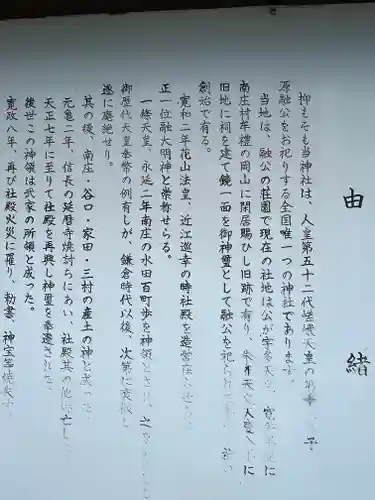 由緒
抑もそも当神社は、人皇第五十二代嵯峨天皇の第 子
源融公をお祀りする全国唯一つの神社であります。
当地は、融公の荘園で現在の社地は公が宇多天 寛平 に
南庄村牟礼の岡山に閑居賜ひし旧跡で有り、朱雀天
旧地に祠を建て鏡一面を御神璽として融公を祀ら
創始で有る。
寛和二年花山法皇、近江巡幸の時社殿を造営
正一位融大明神と崇称せらる。
一條天皇、永延二年南庄の水田百町歩を神領とされ、
御歴代天皇奉幣の例有しが、鎌倉時代以後、次第に衰微し
遂に廃絶せり。
其の後、南庄・谷口・家田・三村の産土の神と
元亀二年、信長の延暦寺焼討ちにあい、社殿其の他 亡し
天正七年に至りて社殿を再興し神璽を奉遷
後世この神領は武家の所領と成った。
寛政八年、再び社殿火災に罹り、勅書、神宝等焼失